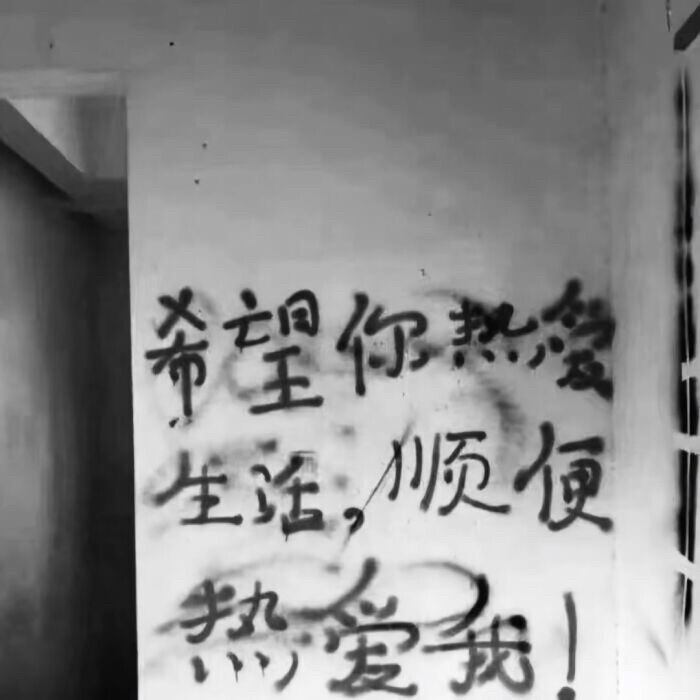 希望你热爱
生活,顺便
热爱我!